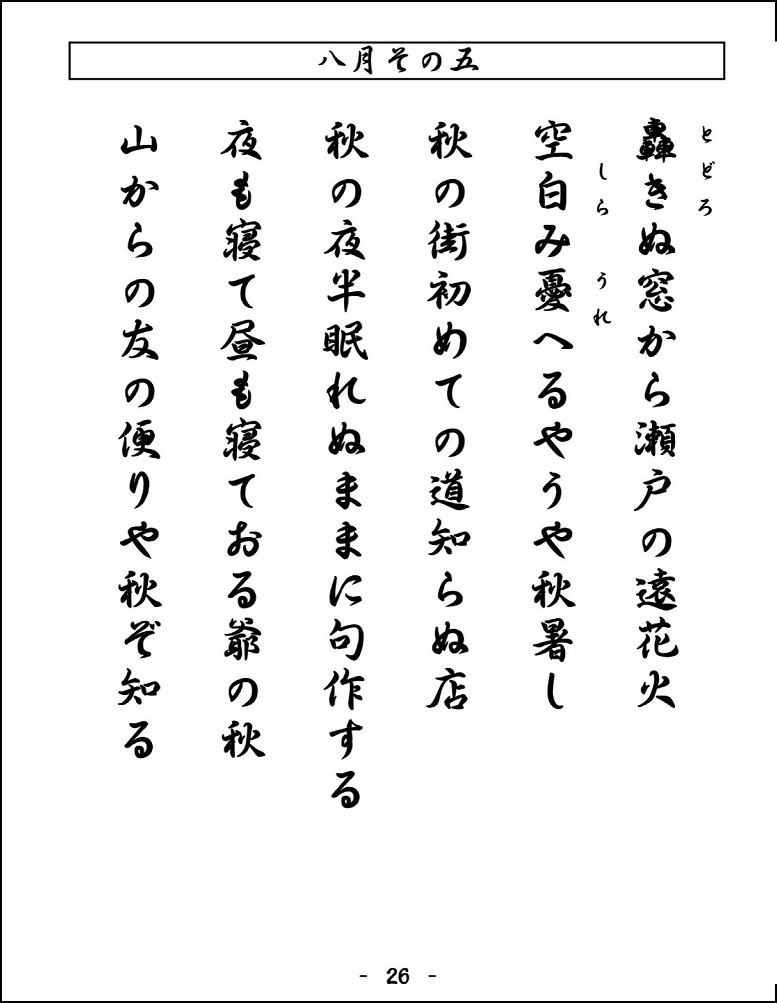 八月その五
轟きぬ窓から瀬戸の遠花火
とどろ
空白み憂へるやうや秋暑し
しら
うれ
秋の街初めての道知らぬ店
秋の夜半眠れぬままに句作する
夜も寝て昼も寝ておる爺の秋
山からの友の便りや秋ぞ知る
- 26 -